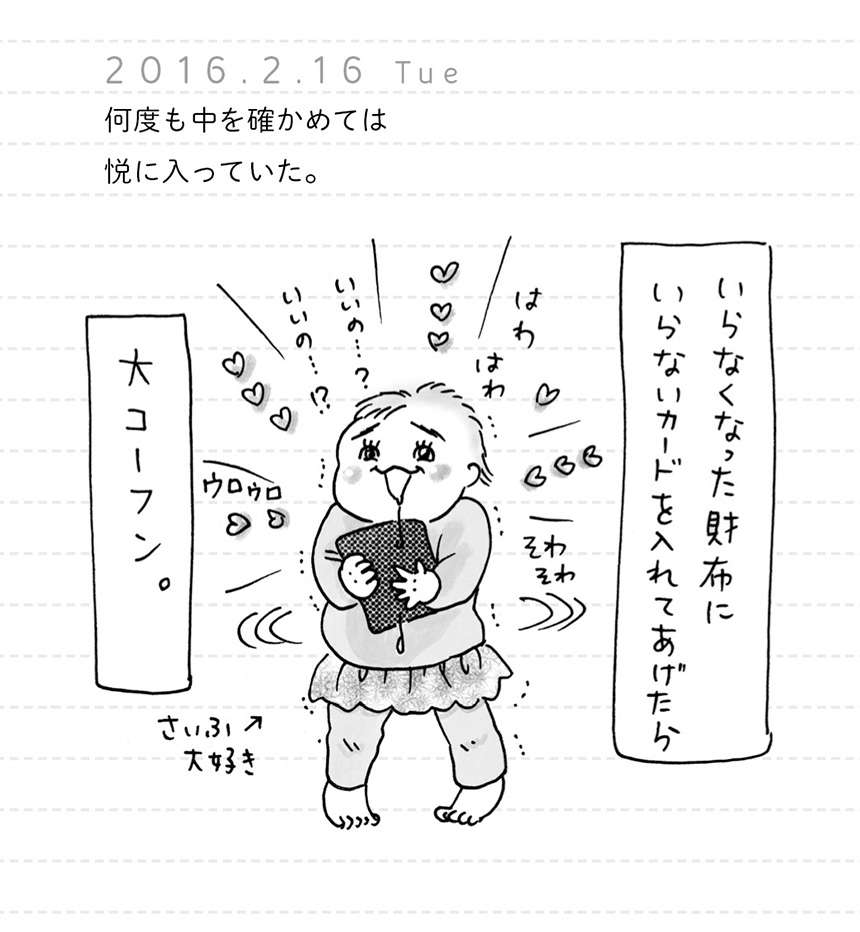 2016.2.16 Tue
何度も中を確かめては
悦に入っていた。
いらなくなった財布に
いらないカードを入れてあげたら
はわ
はわ
いいの…?
いいの…!?
そわ
そわ
ウロウロ
大コーフン。
さいふ↗
大好き